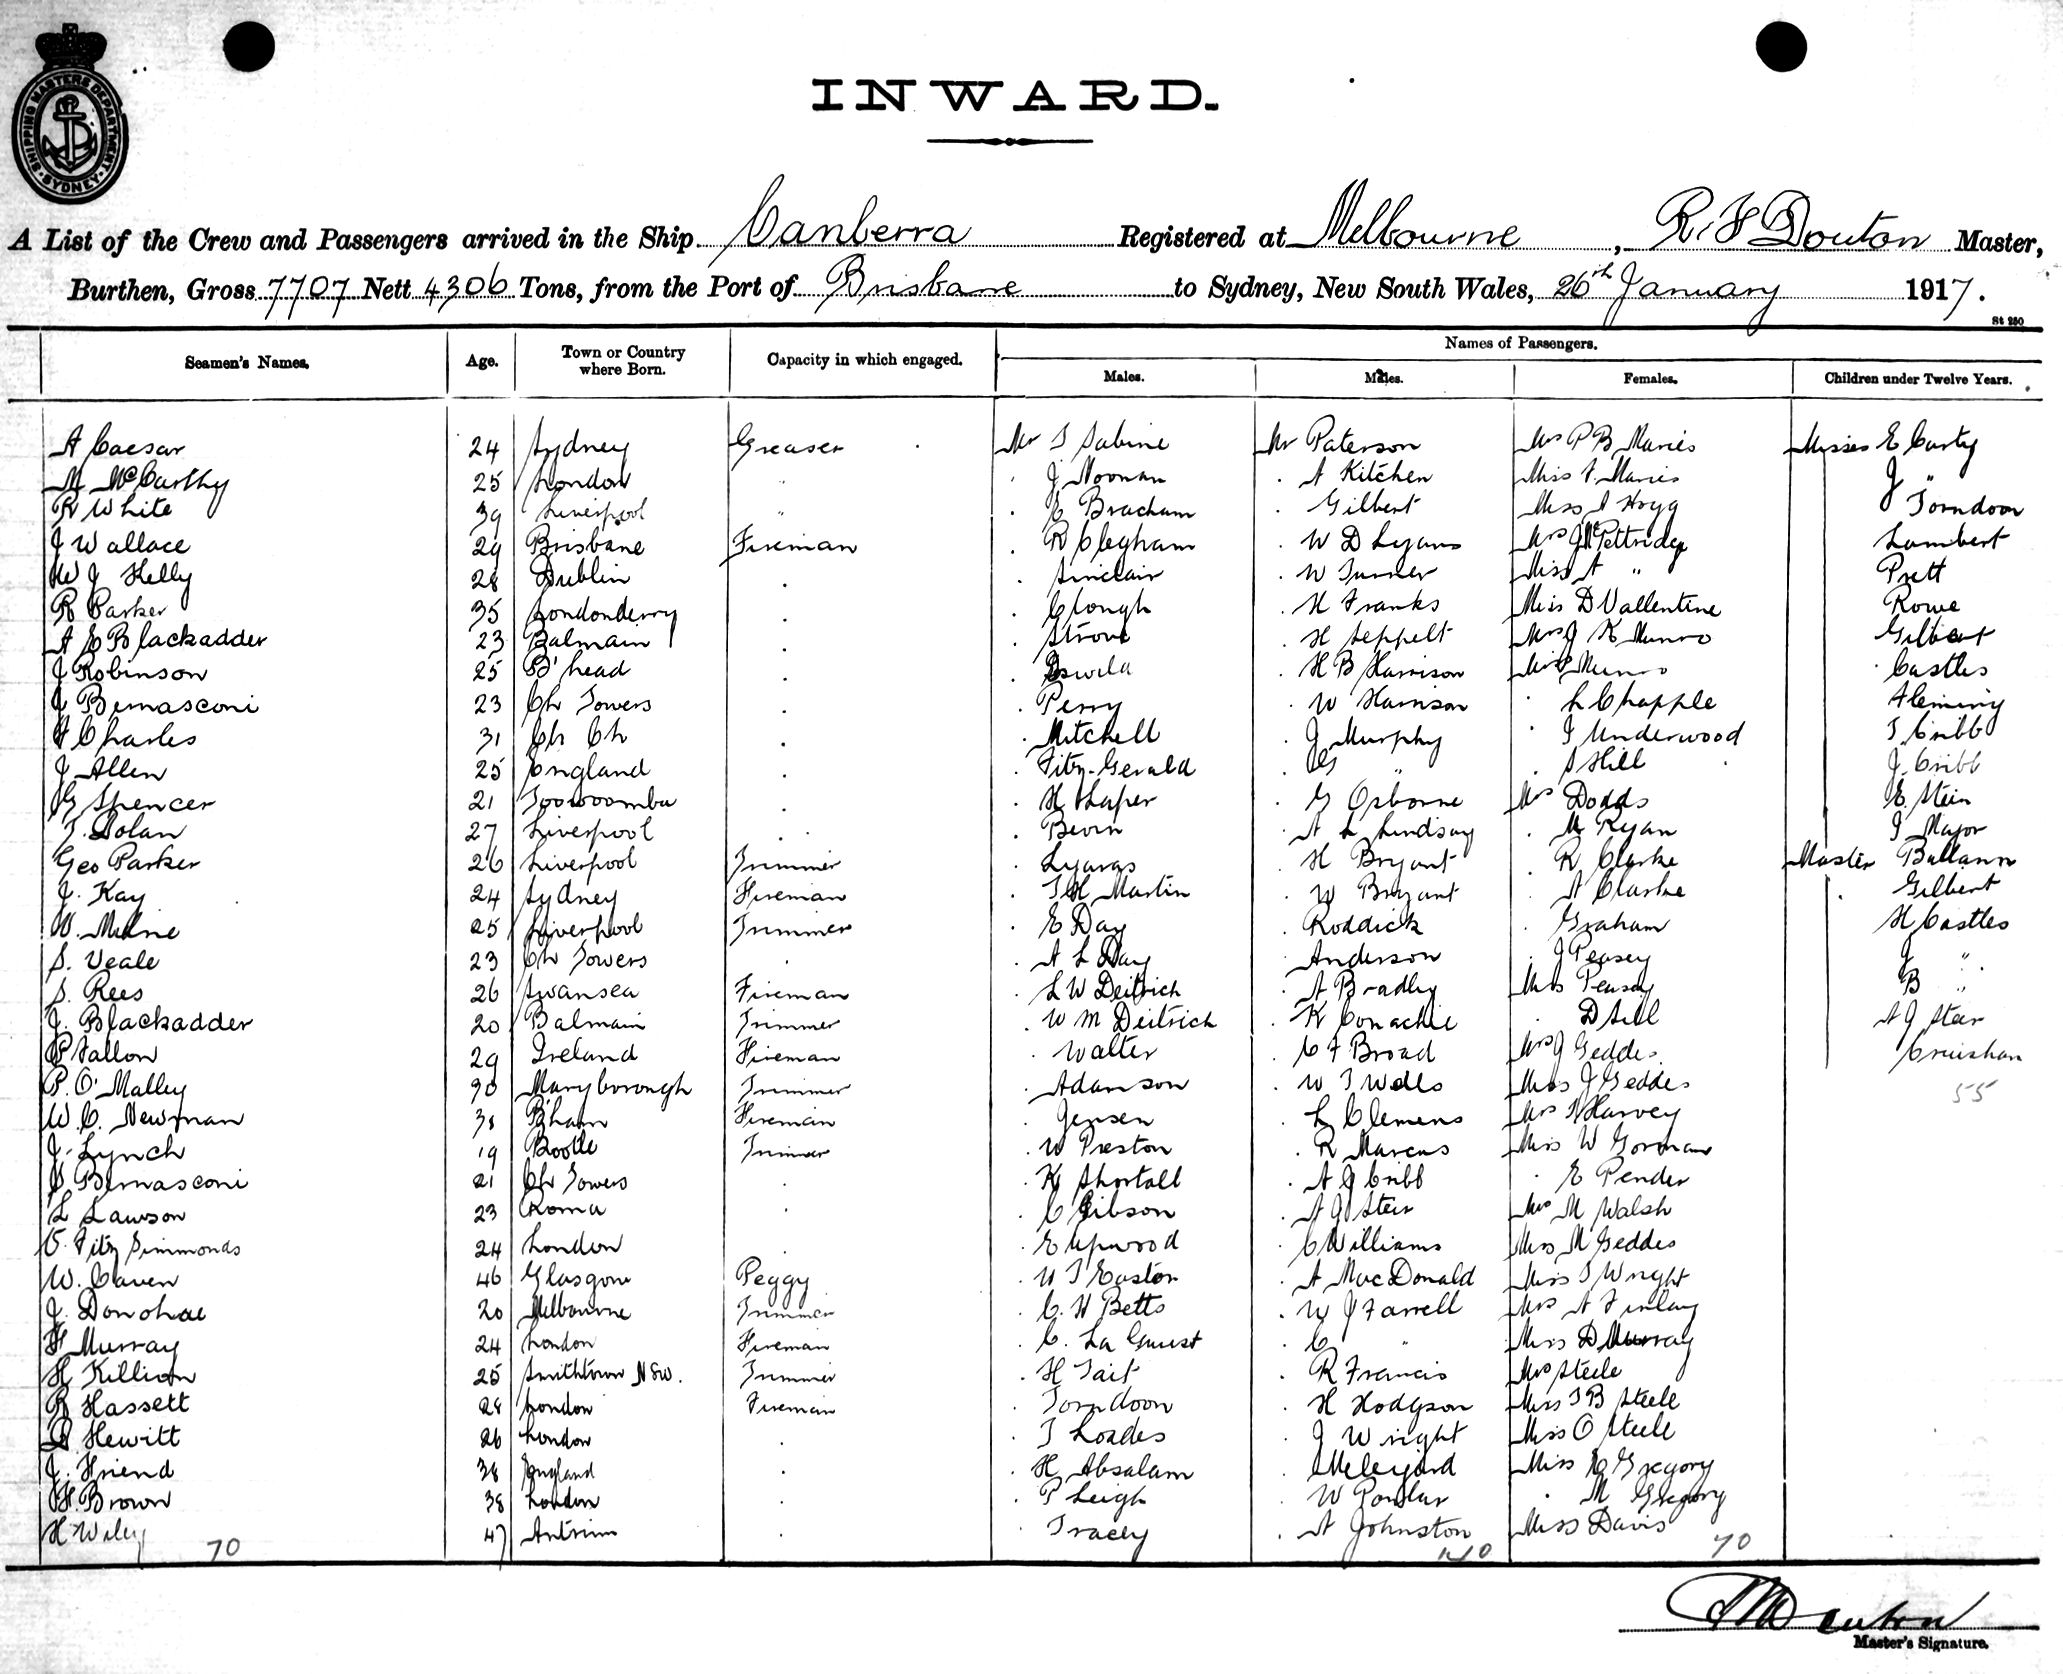 SHIPPING MASTERS DEPARTMENT SYDNEY
INWARD.
A List of the Crew and Passengers arrived in the Ship Canberra Registered at Melbourne, R. F Douton Master,
Burthen, Gross 7707 Nett 4306 Tons, from the Port of Brisbane to Sydney, New South Wales, 26th January 1917.
St 250
Seamen's Names. Age. Town or Country where Born. Capacity in which engaged. Names of Passengers.
Males. Males. Females. Children under Twelve Years.
A Caesar 24 Sydney Greaser Mr T Sabine Mr Paterson Mrs P B Maries Misses E Carty
M McCarthy 25 London " J Noonan A Kitchen Miss F. Maries J "
R White 39 Liverpool " E Bracham Gilbert Miss A Hogg Torndoon
J Wallace 29 Brisbane Fireman R Clegham W D Lyons Mrs Pettridge Lambert
W J Kelly 28 Dublin Sinclair W Turner Miss A " Prett
R Parker 35 Londonderry Clough H Franks Miss D Vallentine Rowe
A E Blackadder 23 Balmain H Seppelt Mrs J K Munro Gilbert
J Robinson 25 B'head H B Harrison Munro Castles
J Bernasconi 23 Ch Towers Perry W Harrison L Chapple Fleming
F Charles 31 Ch Ch Mitchell J Murphy I Underwood T Cribb
J Allen 25 England Fitz-Gerald G " S Hill J. Cribb
G Spencer 21 Toowoomba H Shaper G Osborne Mrs Dodds E. Stein
T. Dolan 27 Liverpool Bevin A L Lindsay M Ryan I Major
Geo Parker 26 Liverpool Trimmer H Bryant R Clarke Master Ballann
J. Kay 24 Sydney Fireman T H Martin W Bryant A Clarke Gilbert
W. Milne 25 Liverpool Trimmer E Day Roddick Graham H Castles
S. Veale 23 Ch Towers A L Day Anderson J Peasey J "
S. Rees 26 Swansea Fireman L W Deitrich A Bradley Miss Peasey B "
J. Blackadder 20 Balmain Trimmer W M Deitrich K Conachie D Sill A J Steir
P Fallon 29 Ireland Fireman Walter C F Broad Mrs J Geddes
P. O'Malley 30 Maryborough Trimmer Adamson W T Wells Miss J Geddes 55
W. C. Newman 38 B'ham Fireman Jensen L Clemens Mrs Harvey
J. Lynch 19 Bootle Trimmer W Preston R Marcus Miss W Gorman
Bernasconi 21 Ch Towers K Shortall A J Cribb E Pender
L Lawson 23 Roma C Gibson A J Steir Mrs M Walsh
Fitz Simmonds 24 London E Upwood C Williams Miss M Geddes
W. Caven 46 Glasgow Peggy W T Easton A MacDonald Miss T Wright
J. Donohoe 20 Melbourne Trimmer C. H Betts W J Farrell Mrs A Finlay
F Murray 24 London Fireman C. La Guest C " Miss D Murray
H Killian 25 Smithtown NSW. Trimmer H Tait R Francis Mrs Steele
R Hassett 28 London Fireman Torndoon H Hodgson Miss T B Steele
Hewitt 26 London T Loades J Wright Miss O Steele
J. Friend 38 England H Absalam Meleyard Miss Gregory
H. Brown 38 London P Leigh W M Gregory
H Wiley 47 Antrim Tracey A Johnston Miss Davis
70 140 70
Douton
Master's Signature.